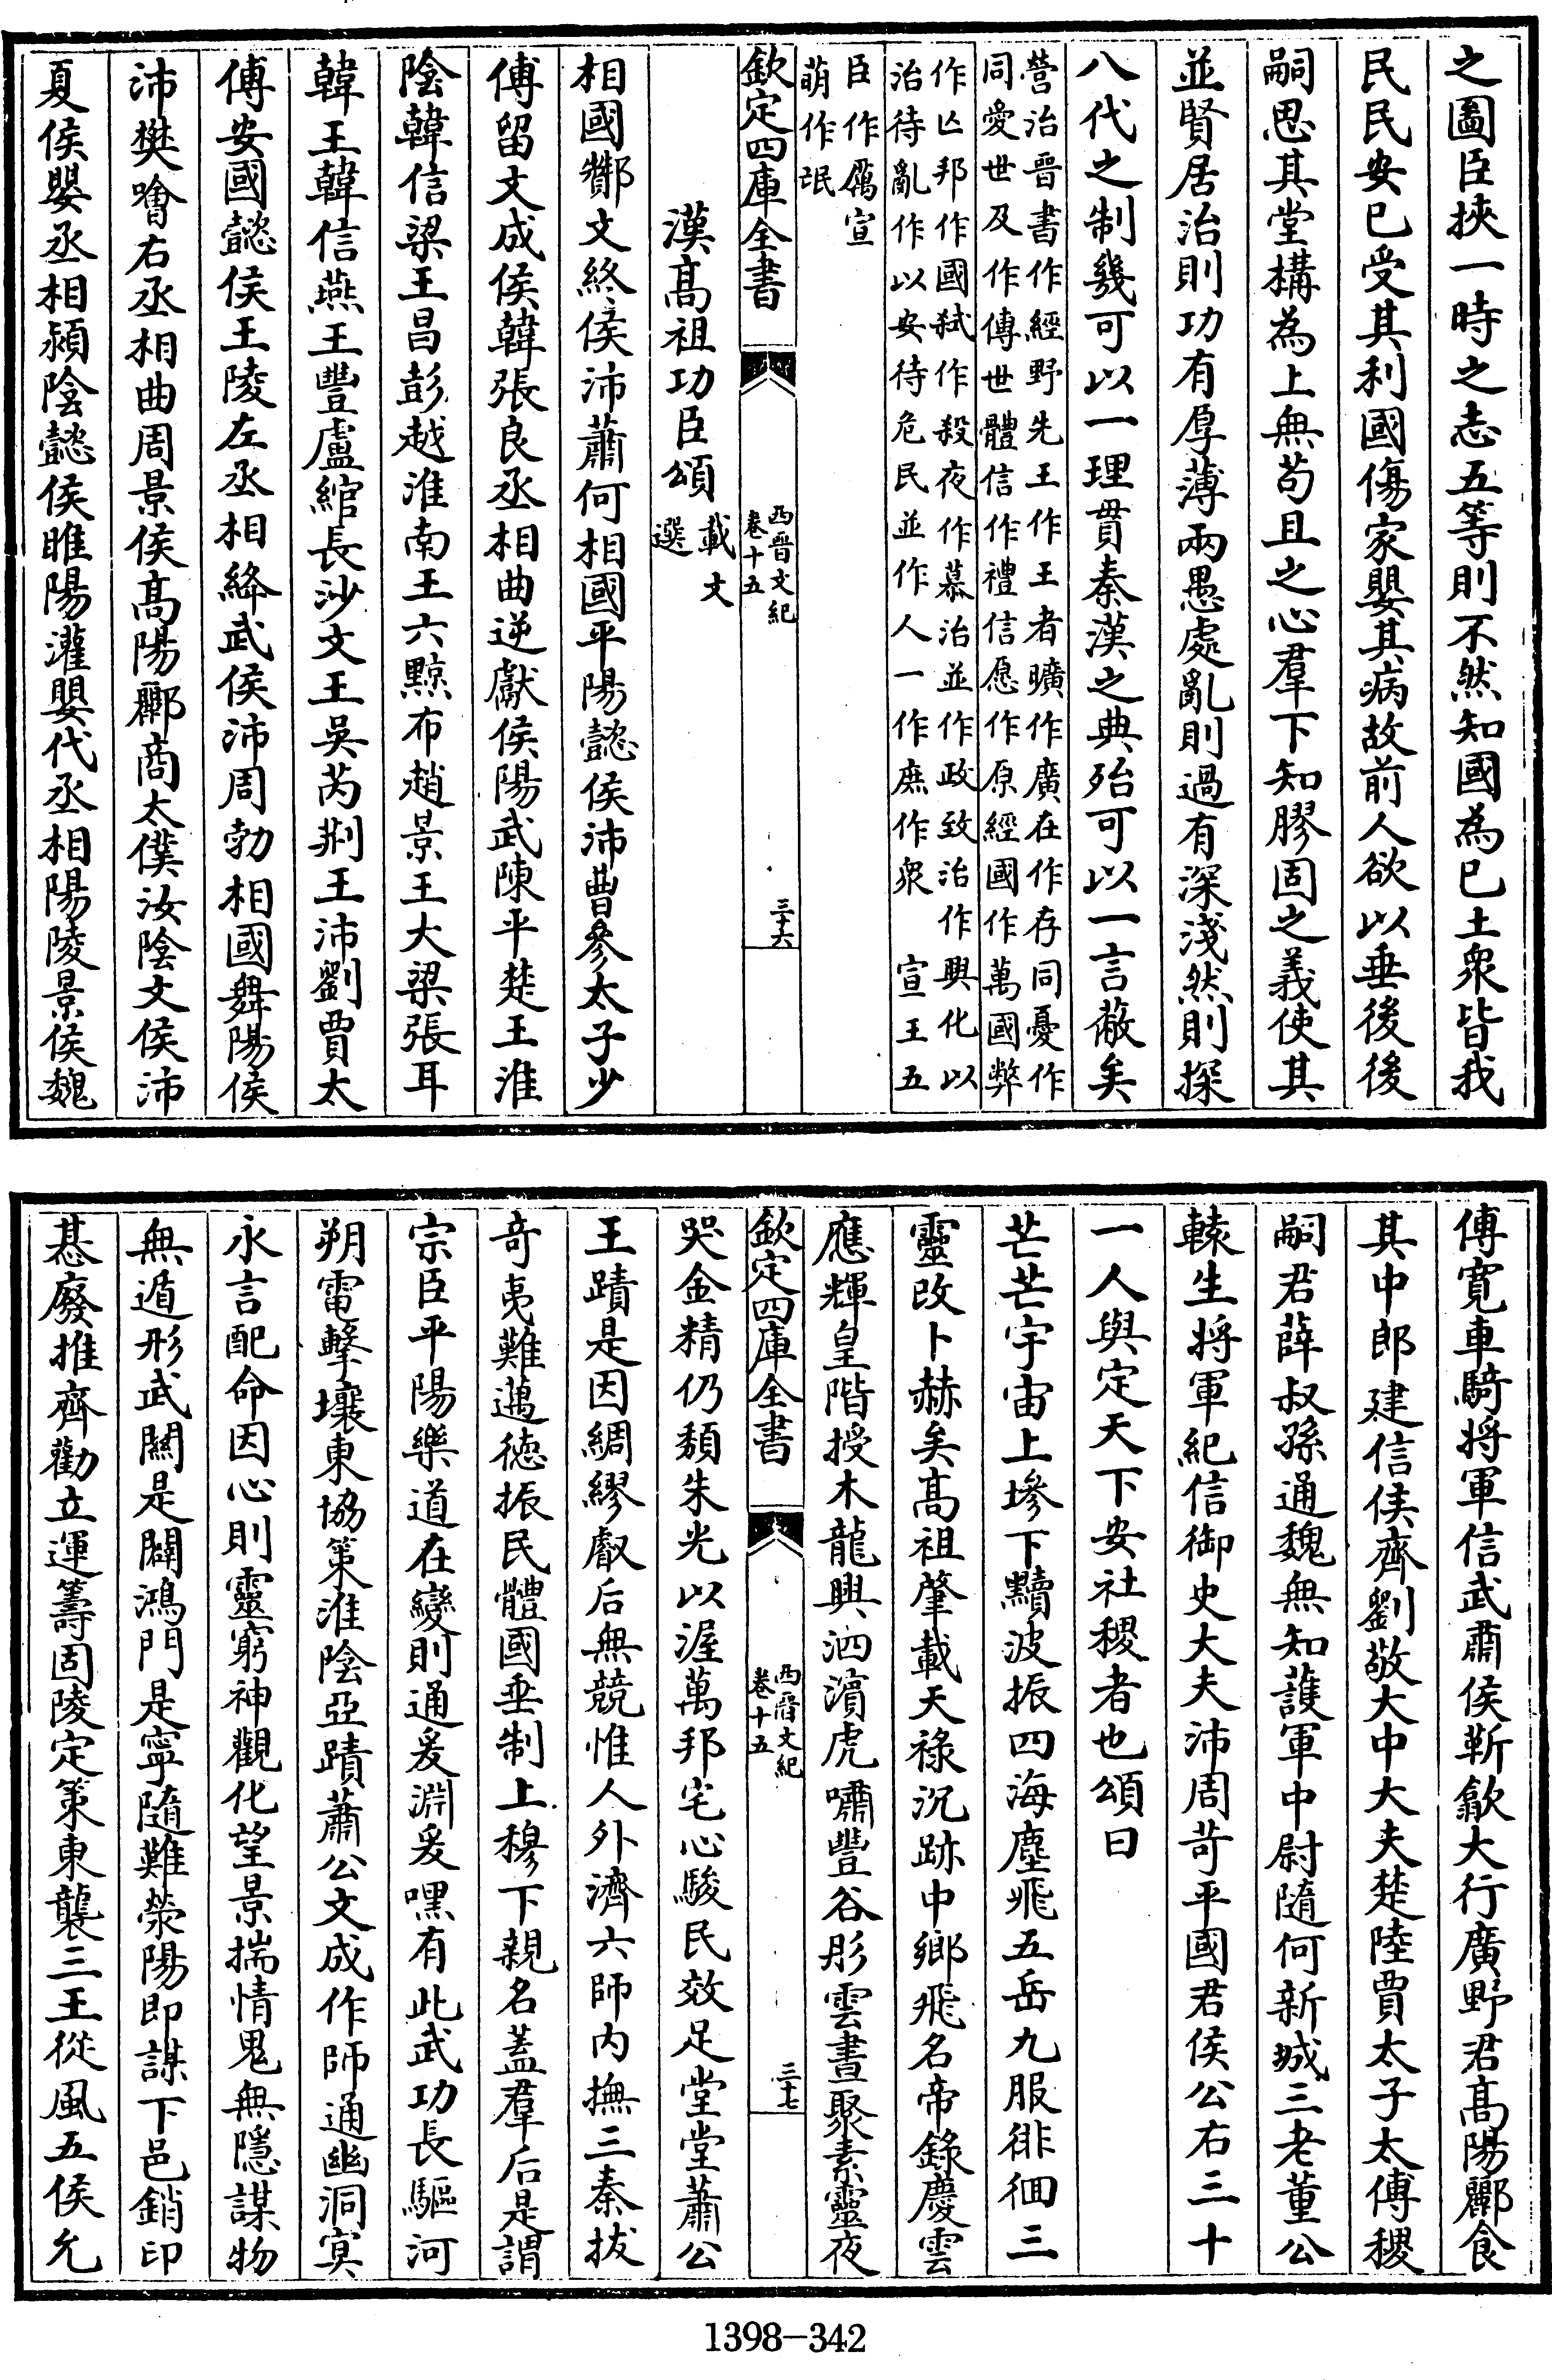 之圖臣挾一時之志五等則不然知國為已土衆皆我
民民安已受其利國傷家嬰其病故前人欲以垂後後
嗣思其堂構為上無苟且之心羣下知膠固之義使其
並賢居治則功有厚薄兩愚處亂則過有深淺然則探
八代之制幾可以一理貫秦漢之典殆可以一言蔽矣
營治晉書作經野先王作王者曠作廣在作存同憂作
同愛世及作傳世體信作禮信愿作原經國作萬國弊
作亾邦作國弑作殺夜作慕治並作政致治作興化以
治待亂作以安待危民並作人一作庶作衆 宣王五
臣作厲宣
萌作氓
欽定四庫全書
西晉文紀
卷十五
三十六
漢髙祖功臣頌
載文
選
相國酇文終侯沛蕭何相國平陽懿侯沛曹參太子少
傅留文成侯韓張良丞相曲逆獻侯陽武陳平楚王淮
陰韓信梁王昌彭越淮南王六黥布趙景王大梁張耳
韓王韓信燕王豐盧綰長沙文王吳芮荆王沛劉賈太
傅安國懿侯王陵左丞相絳武侯沛周勃相國舞陽侯
沛樊噲右丞相曲周景侯髙陽酈商太僕汝陰文侯沛
夏侯嬰丞相潁陰懿侯睢陽灌嬰代丞相陽陵景侯魏
傅寛車騎將軍信武肅侯靳歙大行廣野君髙陽酈食
其中郎建信侯齊劉敬大中大夫楚陸賈太子太傅稷
嗣君薛叔孫通魏無知護軍中尉隨何新城三老董公
轅生將軍紀信御史大夫沛周苛平國君侯公右三十
一人與定天下安社稷者也頌曰
芒芒宇宙上墋下黷波振四海塵飛五岳九服徘徊三
靈改卜赫矣髙祖肇載天祿沉跡中鄉飛名帝錄慶雲
應輝皇階授木龍興泗濱虎嘯豐谷彤雲晝聚素靈夜
欽定四庫全書
西晉文紀
卷十五
三十七
哭金精仍頹朱光以渥萬邦宅心駿民效足堂堂蕭公
王蹟是因綢繆叡后無競惟人外濟六師內撫三秦拔
竒夷難邁德振民體國垂制上穆下親名葢羣后是謂
宗臣平陽樂道在變則通爰淵爰嘿有此武功長驅河
朔電擊壤東協策淮陰亞蹟蕭公文成作師通幽洞冥
永言配命因心則靈窮神觀化望景揣情鬼無隱謀物
無遁形武關是闢鴻門是寧隨難滎陽即謀下邑銷印
惎廢推齊勸立運籌固陵定策東襲三王從風五侯允
1398-342